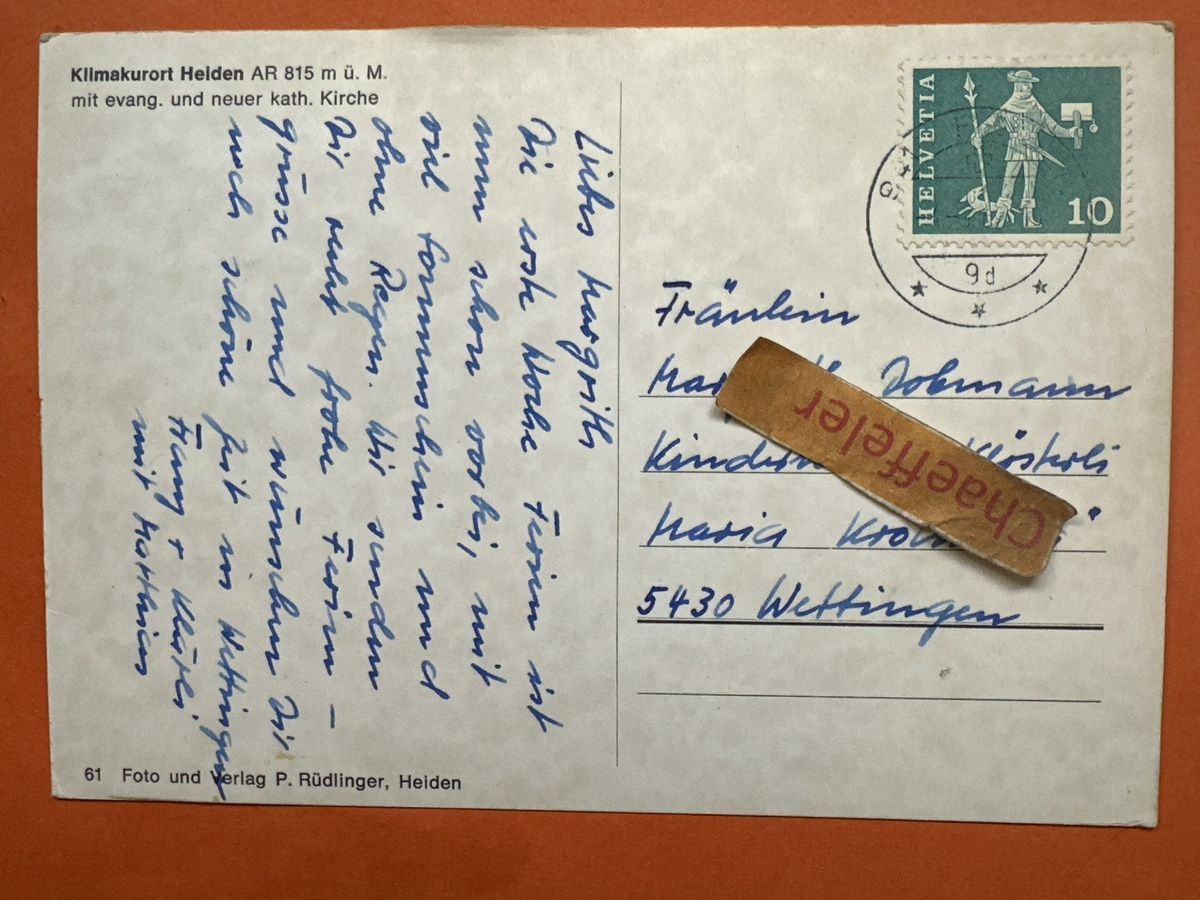 Klimakurort Heiden AR 815 m ü. M.
mit evang. und neuer kath. Kirche
Liebes Margrith
Die erste Woche Ferien ist
nun schon vorbei, mit
viel Sonnenschein und
ohne Regen. Wir senden
Dir recht frohe Ferien –
grüsse und wünschen Dir
noch schöne Zeit in Wettingen
Franz + Klärli
mit Matthias
61 Foto und Verlag P. Rüdlinger, Heiden
HELVETIA
10
9d
Fräulein
Dobmann
Klösterli
Maria
5430 Wettingen
Chaeffeler